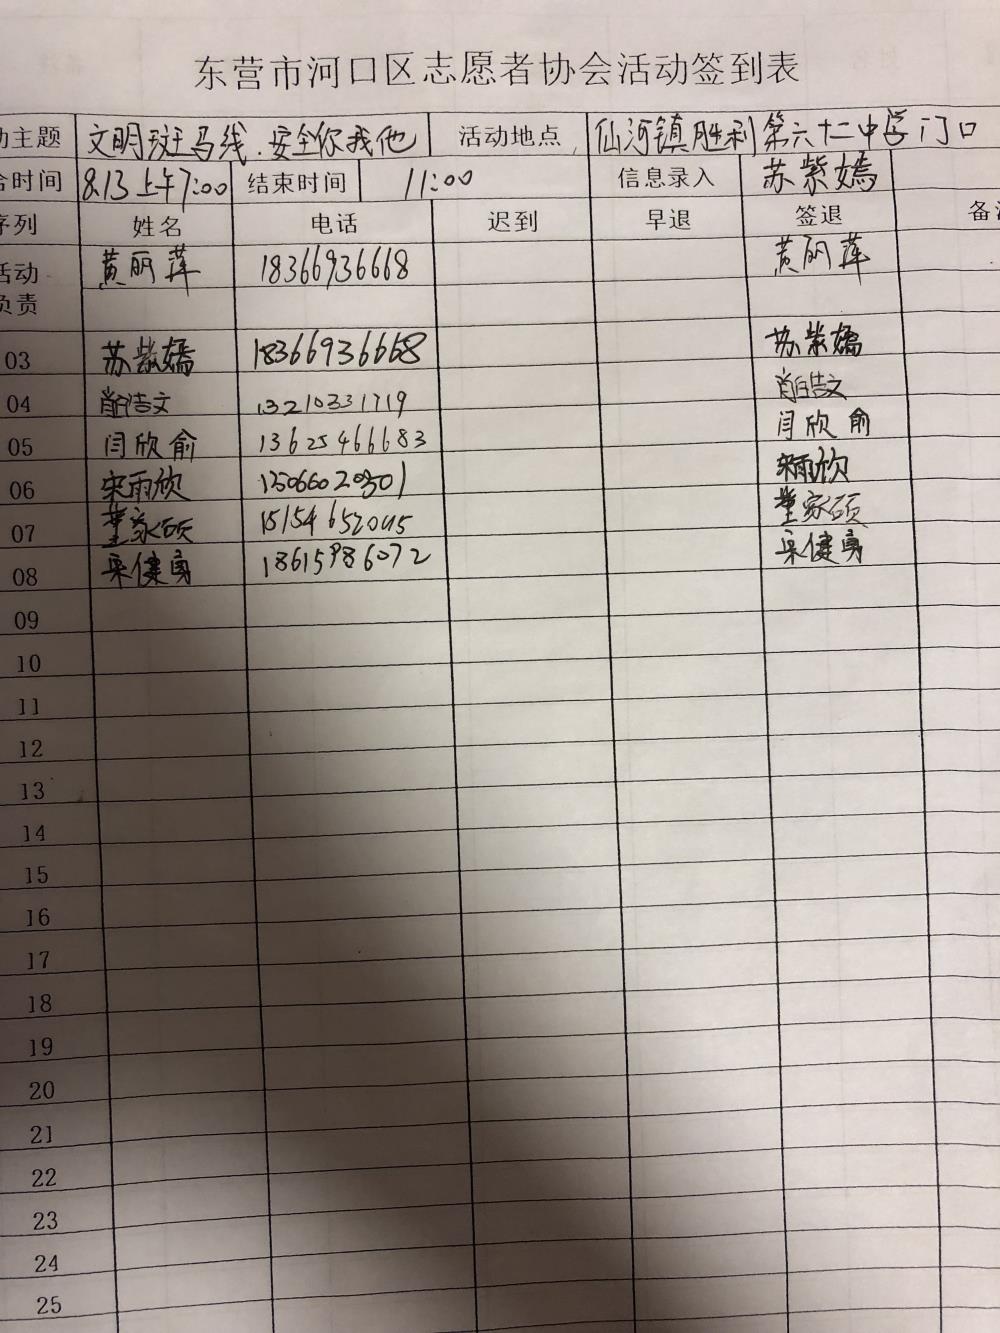 东营市河口区志愿者协会活动签到表
动主题 文明斑马线.安全你我他 活动地点 仙河镇胜利第六十二中学门口
合时间 8.13上午7:00 结束时间 11:00 信息录入 苏紫嫣
序列 姓名 电话 迟到 早退 签退 备注
活动 黄丽萍 18366936668 黄丽萍
负责
03 苏紫嫣 18366936668 苏紫嫣
04 肖浩文 13210331719 肖浩文
05 闫欣俞 13625466683 闫欣俞
06 宋雨欣 宋雨欣
07 董家硕 15154652045 董家硕
08 18615986072
09
10
11
12
13
14
15
16
17
18
19
20
21
22
23
24
25